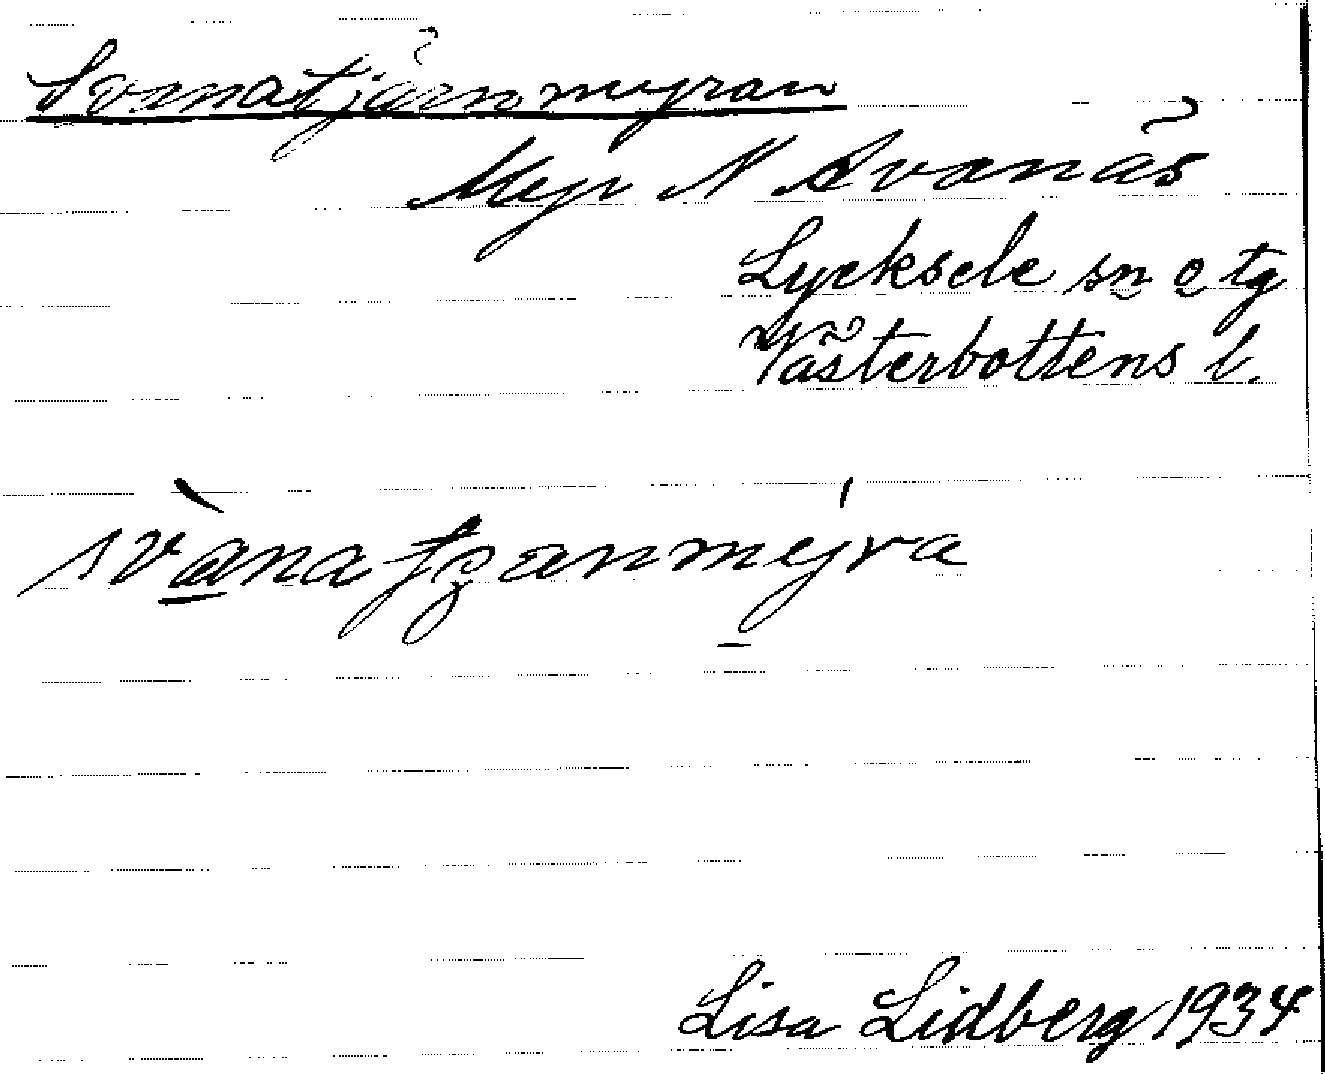 Svanatjärnmyran
Myr N Svanäs
Lycksele sn o tg
Västerbottens l.
Lisa Lidberg 1934